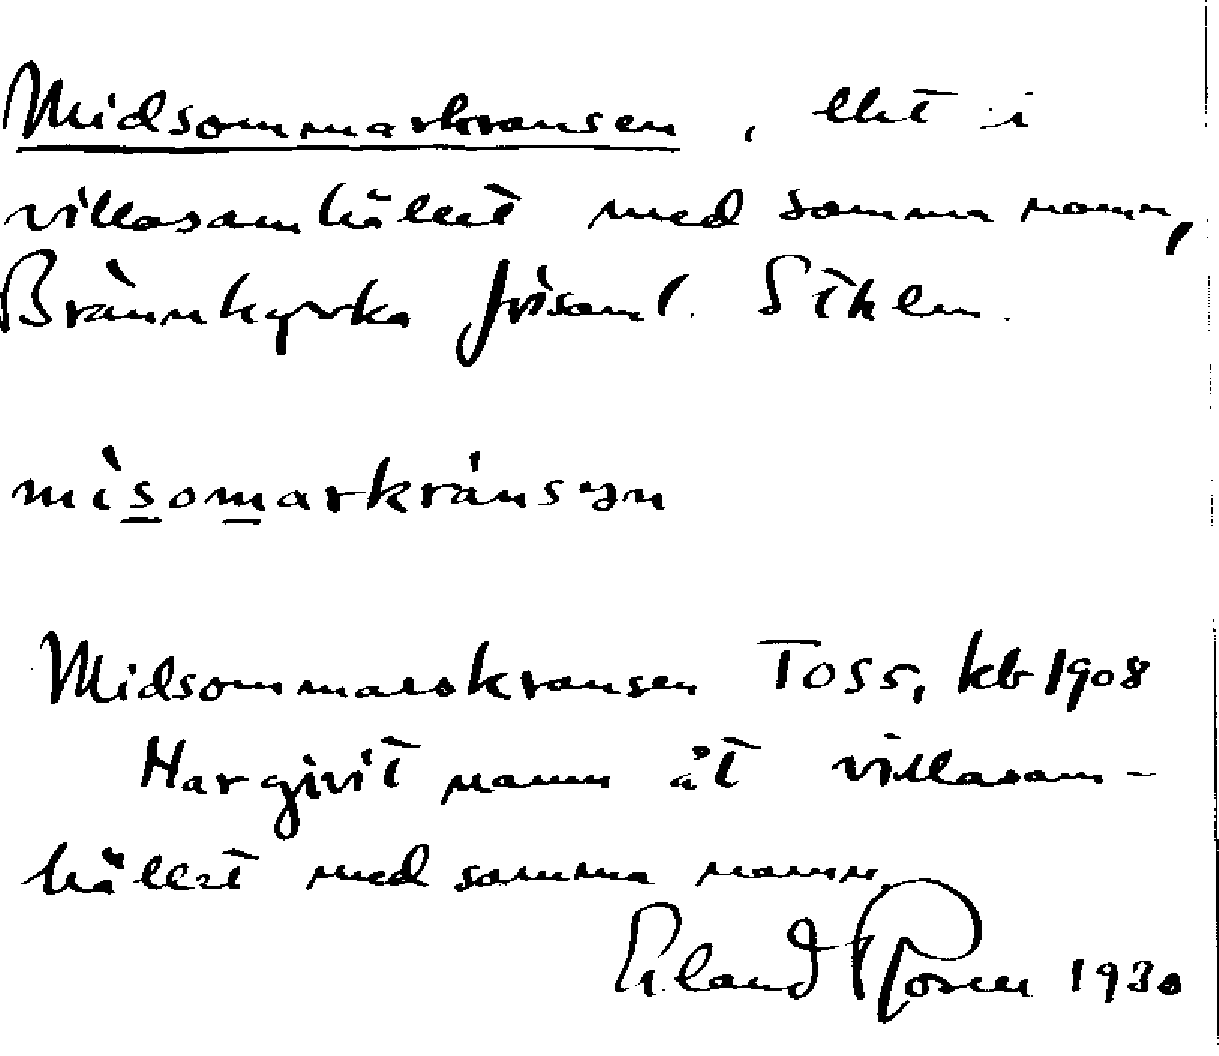 Midsommarkransen, lht i
villasamhället med samma namn,
Brännkyrkaförsaml. Sthlm.
mìsomarkránsən
Midsommarskransen Toss, kb 1908
Har givit namn åt villasam-
hället med samma namn.
Erland Rosell 1930